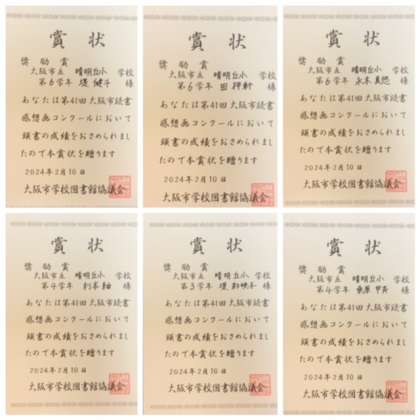 賞状
奨励賞
大阪市立 晴明丘小 学校
第6学年 堤 健斗 様
あなたは第41回大阪市読書
感想画コンクールにおいて
頭書の成績をおさめられまし
たので本賞状を贈ります
2024年2月10日
大阪市学校図書館協議会
賞状
奨励賞
大阪市立 晴明丘小 学校
第6学年 様
あなたは第41回大阪市読書
感想画コンクールにおいて
頭書の成績をおさめられまし
たので本賞状を贈ります
2024年2月10日
大阪市学校図書館協議会
賞状
奨励賞
大阪市立 晴明丘小 学校
第6学年 様
あなたは第41回大阪市読書
感想画コンクールにおいて
頭書の成績をおさめられまし
たので本賞状を贈ります
2024年2月10日
大阪市学校図書館協議会
賞状
奨励賞
大阪市立 晴明丘小 学校
第4学年 様
あなたは第41回大阪市読書
感想画コンクールにおいて
頭書の成績をおさめられまし
たので本賞状を贈ります
2024年2月10日
大阪市学校図書館協議会
賞状
奨励賞
大阪市立 晴明丘小 学校
第3学年 堤 様
あなたは第41回大阪市読書
感想画コンクールにおいて
頭書の成績をおさめられまし
たので本賞状を贈ります
2024年2月10日
大阪市学校図書館協議会
賞状
奨励賞
大阪市立 晴明丘小 学校
第4学年 様
あなたは第41回大阪市読書
感想画コンクールにおいて
頭書の成績をおさめられまし
たので本賞状を贈ります
2024年2月10日
大阪市学校図書館協議会